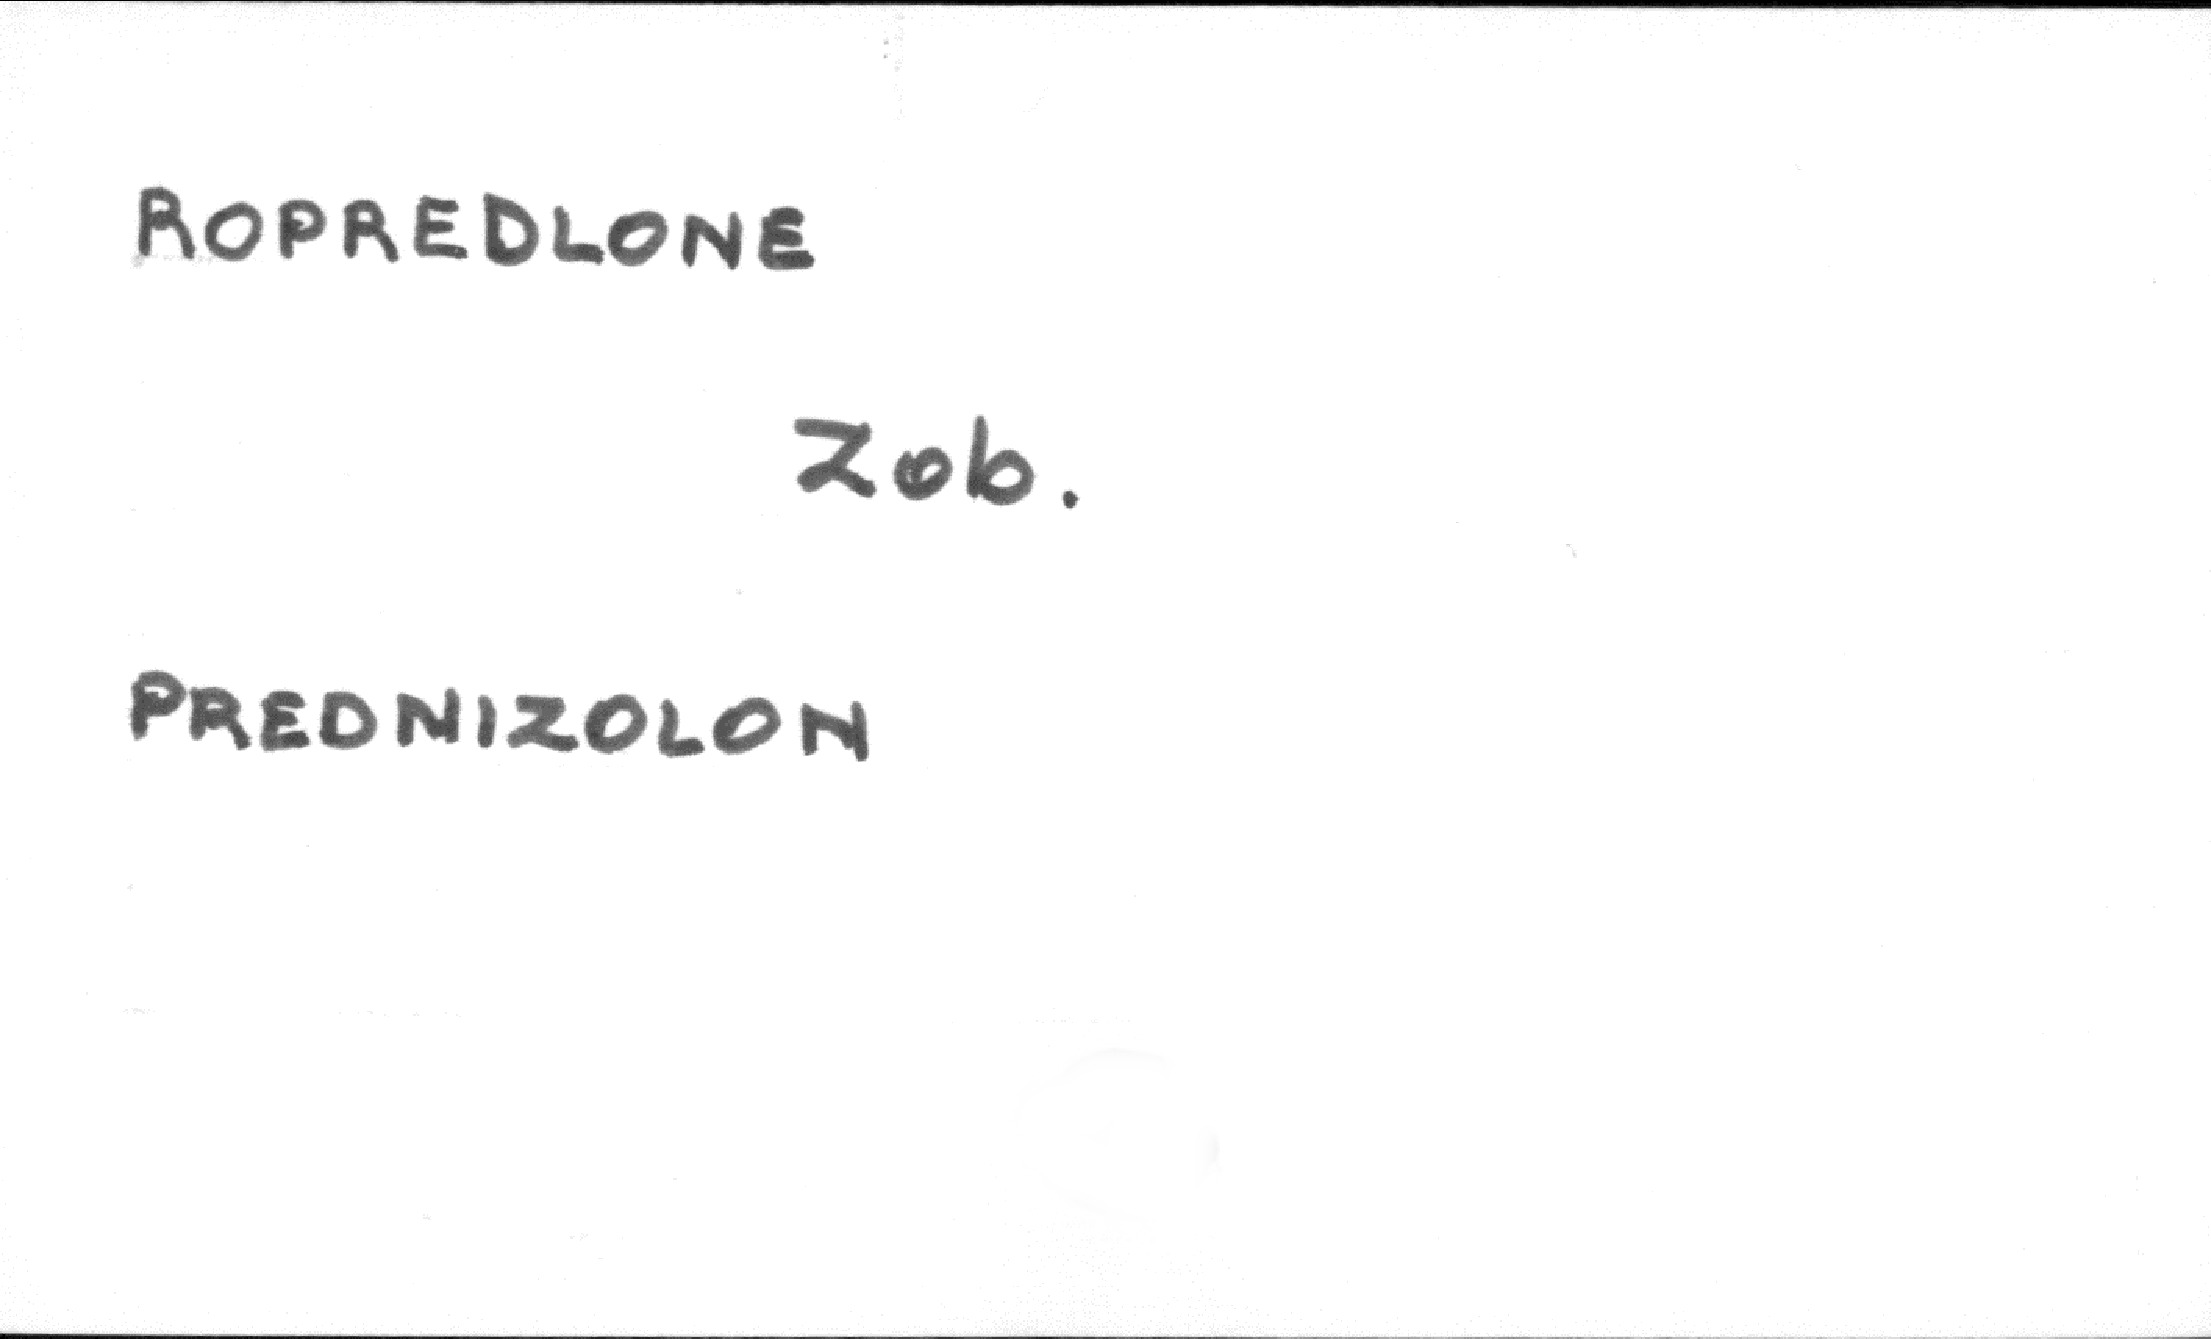 ROPREDLONE
Zob.
PREDNIZOLON